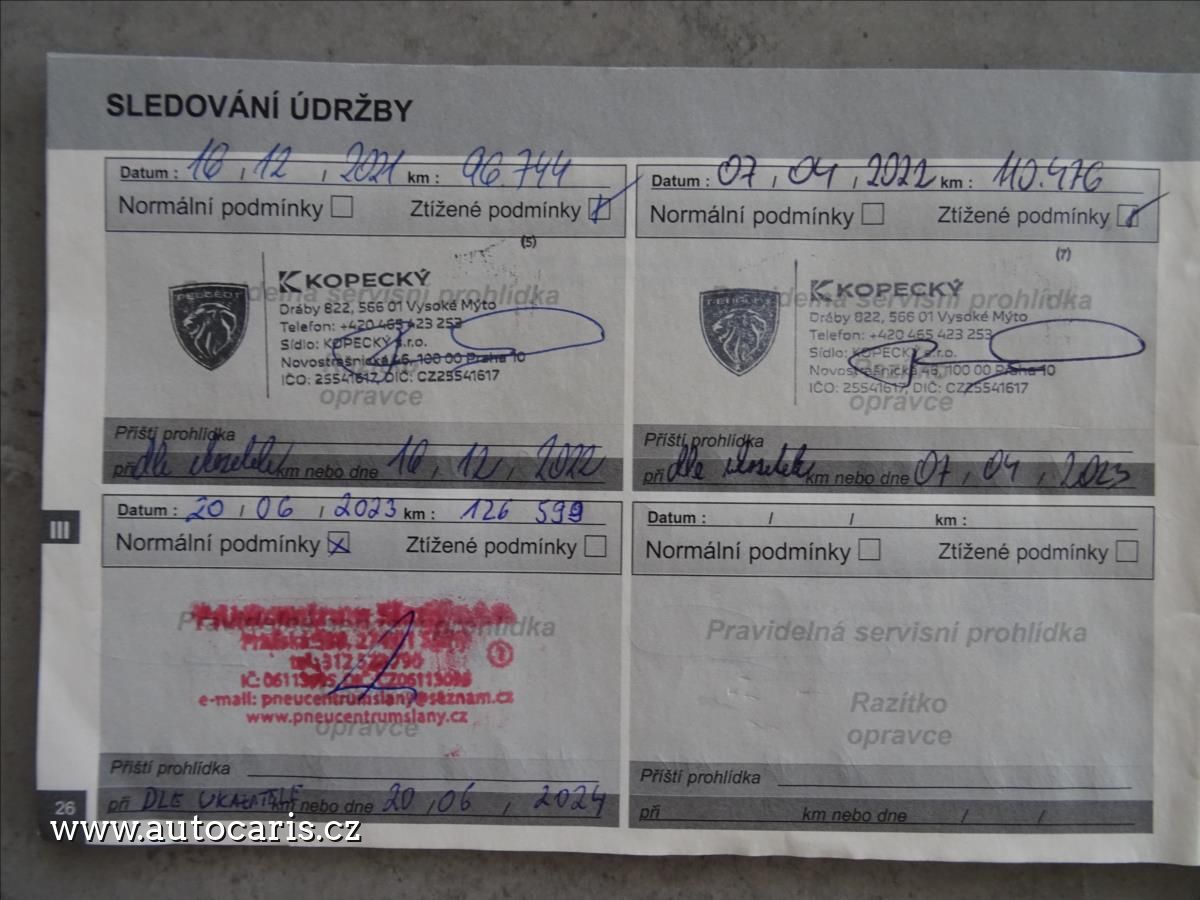 SLEDOVÁNÍ ÚDRŽBY
Datum : 16 / 12 / 2021 km : 96.744
Normální podmínky Ztížené podmínky
(5)
Pravidelná servisní prohlídka
PEUGEOT
KOPECKÝ
Dráby 822, 566 01 Vysoké Mýto
Telefon: +420 465 423 253
Sídlo: KOPECKÝ s.r.o.
Novostrašnická 46, 100 00 Praha 10
IČO: 25541617, DIČ: CZ25541617
opravce
Příští prohlídka
při dle km nebo dne 16 / 12 / 2022
Datum : 07 / 04 / 2022 km : 110.476
Normální podmínky Ztížené podmínky
(7)
Pravidelná servisní prohlídka
PEUGEOT
KOPECKÝ
Dráby 822, 566 01 Vysoké Mýto
Telefon: +420 465 423 253
Sídlo: KOPECKÝ s.r.o.
Novostrašnická 46, 100 00 Praha 10
IČO: 25541617, DIČ: CZ25541617
opravce
Příští prohlídka
při dle km nebo dne 07 / 04 / 2023
III
Datum : 20 / 06 / 2023 km : 126 599
Normální podmínky x Ztížené podmínky
prohlídka
e-mail: pneucentrumslany@seznam.cz
www.pneucentrumslany.cz
opravce
Příští prohlídka
při DLE UKAZATELE km nebo dne 20 / 06 / 2024
Datum : / / km :
Normální podmínky Ztížené podmínky
Pravidelná servisní prohlídka
Razítko
opravce
Příští prohlídka
při km nebo dne / /
26
www.autocaris.cz